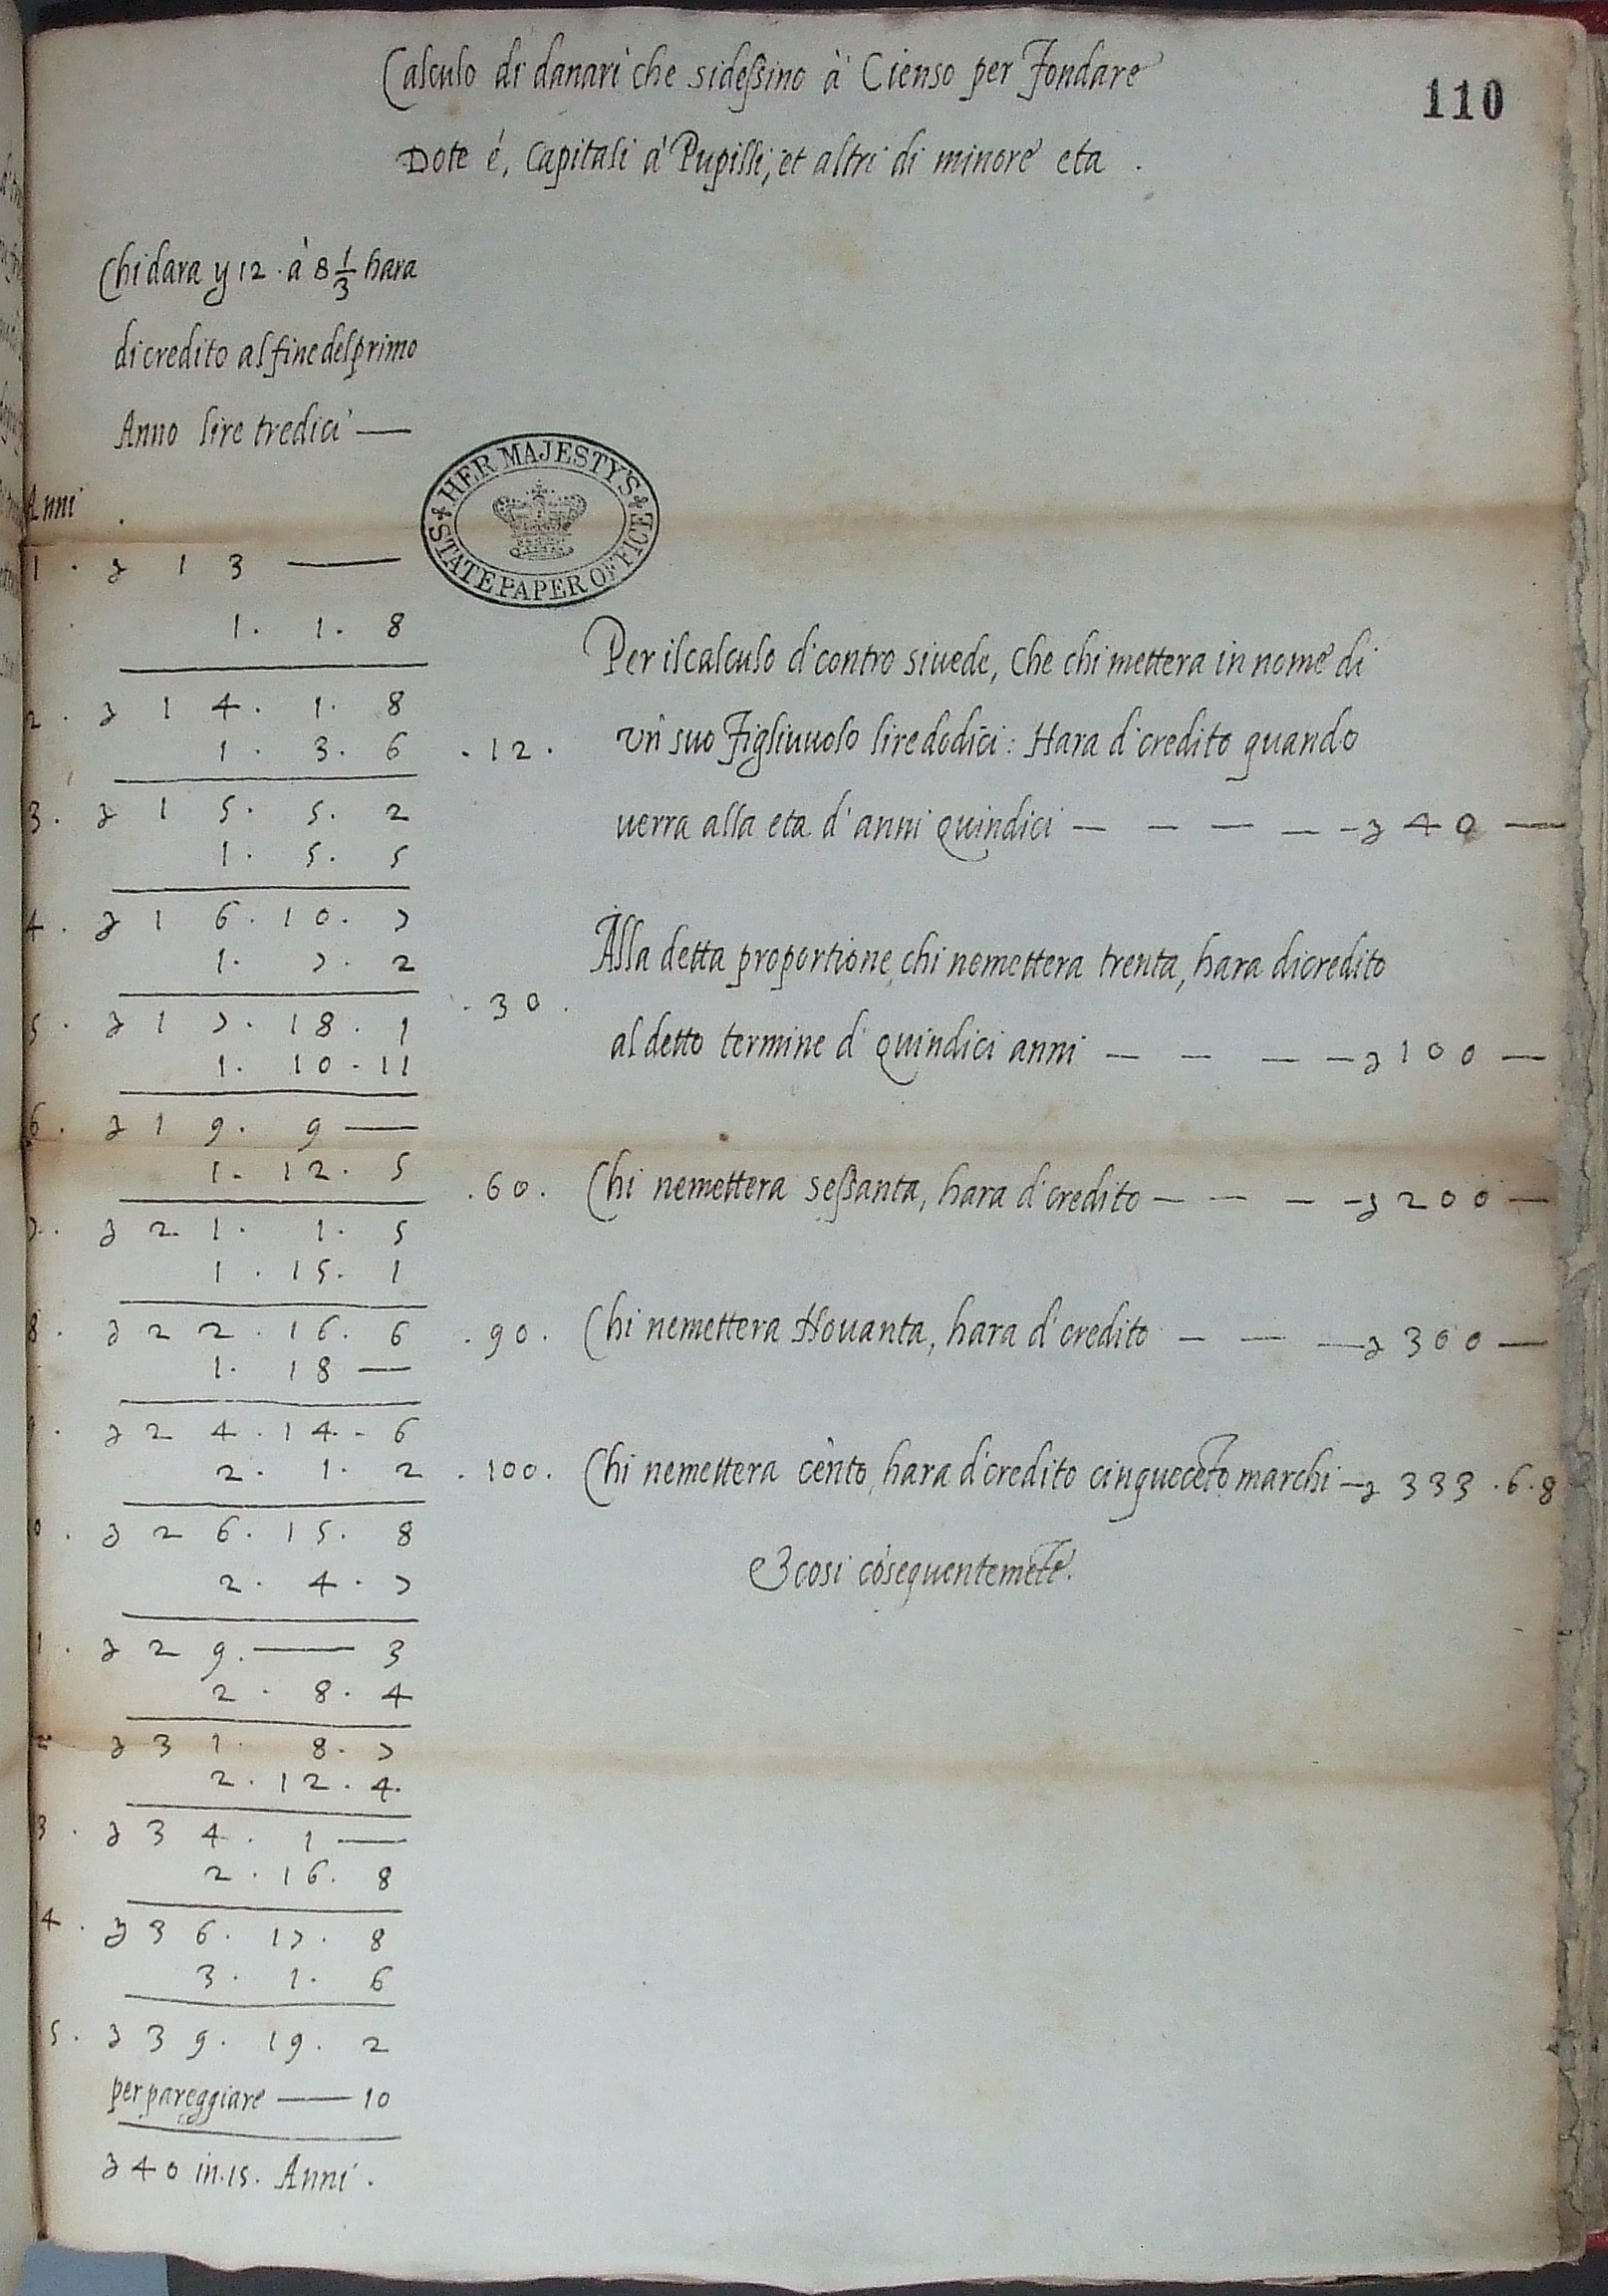 110
Calculo di danari che sidessino à Cienso per Fondare
Dote é, Capitali à Pupilli, et altri di minore eta .
Chi dara y 12 . à 8 1/3 hara
di credito al fine del primo
Anno lire tredici —
HER MAJESTY'S
STATE PAPER OFFICE
Anni
1 . 13 —
1 . 1 . 8
2 . 14 . 1 . 8
1 . 3 . 6
3 . 15 . 5 . 2
1 . 5 . 5
4 . 16 . 10 . 7
1 . 7 . 2
5 . 17 . 18 . 1
1 . 10 . 11
6 . 19 . 9 —
1 . 12 . 5
7 . 21 . 1 . 5
1 . 15 . 1
8 . 22 . 16 . 6
1 . 18 —
9 . 24 . 14 . 6
2 . 1 . 2
0 . 26 . 15 . 8
2 . 4 . 7
1 . 29 . — 3
2 . 8 . 4
2 . 31 . 8 . 7
2 . 12 . 4 .
3 . 34 . 1 —
2 . 16 . 8
4 . 36 . 17 . 8
3 . 1 . 6
15 . 39 . 19 . 2
per pareggiare — 10
40 in . 15 . Anni .
Per il calculo di contro si uede, Che chi mettera in nome di
. 12 . un suo Figliuuolo lire dodici : Hara di credito quando
uerra alla eta d'anni Quindici — — — — 40 —
Alla detta proportione, chi nemettera trenta, hara di credito
. 30 . al detto termine di Quindici anni — — — — 100 —
. 60 . Chi nemettera sessanta, hara di credito — — — — 200 —
. 90 . Chi nemettera Nouanta, hara di credito — — — 300 —
. 100 . Chi nemettera cēnto, hara di credito cinquecēto marchi — 333 . 6 . 8
Et cosi cōsequentemēte .